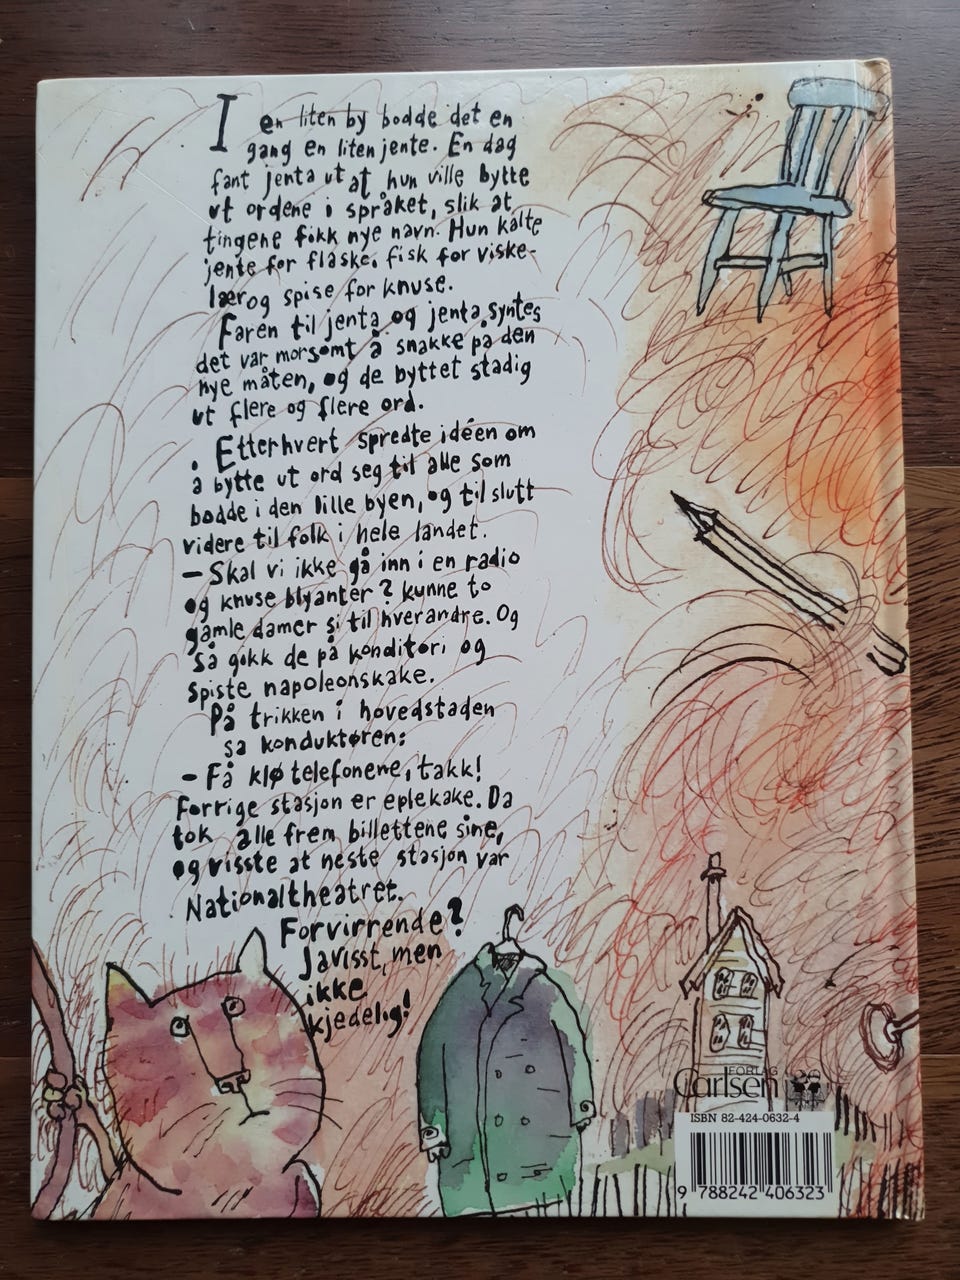 I en liten by bodde det en
gang en liten jente. En dag
fant jenta ut at hun ville bytte
ut ordene i språket, slik at
tingene fikk nye navn. Hun kalte
jente for flaske, fisk for viske-
lær og spise for knuse.
Faren til jenta og jenta syntes
det var morsomt å snakke på den
nye måten, og de byttet stadig
ut flere og flere ord.
Etterhvert spredte idéen om
å bytte ut ord seg til alle som
bodde i den lille byen, og til slutt
videre til folk i hele landet.
– Skal vi ikke gå inn i en radio
og knuse blyanter? kunne to
gamle damer si til hverandre. Og
så gikk de på konditori og
spiste napoleonskake.
På trikken i hovedstaden
sa konduktøren:
– Få klø telefonene, takk!
Forrige stasjon er eplekake. Da
tok alle frem billettene sine,
og visste at neste stasjon var
Nationaltheatret.
Forvirrende?
Javisst, men
ikke
kjedelig!
FORLAG
Carlsen
ISBN 82-424-0632-4
9 788242 406323